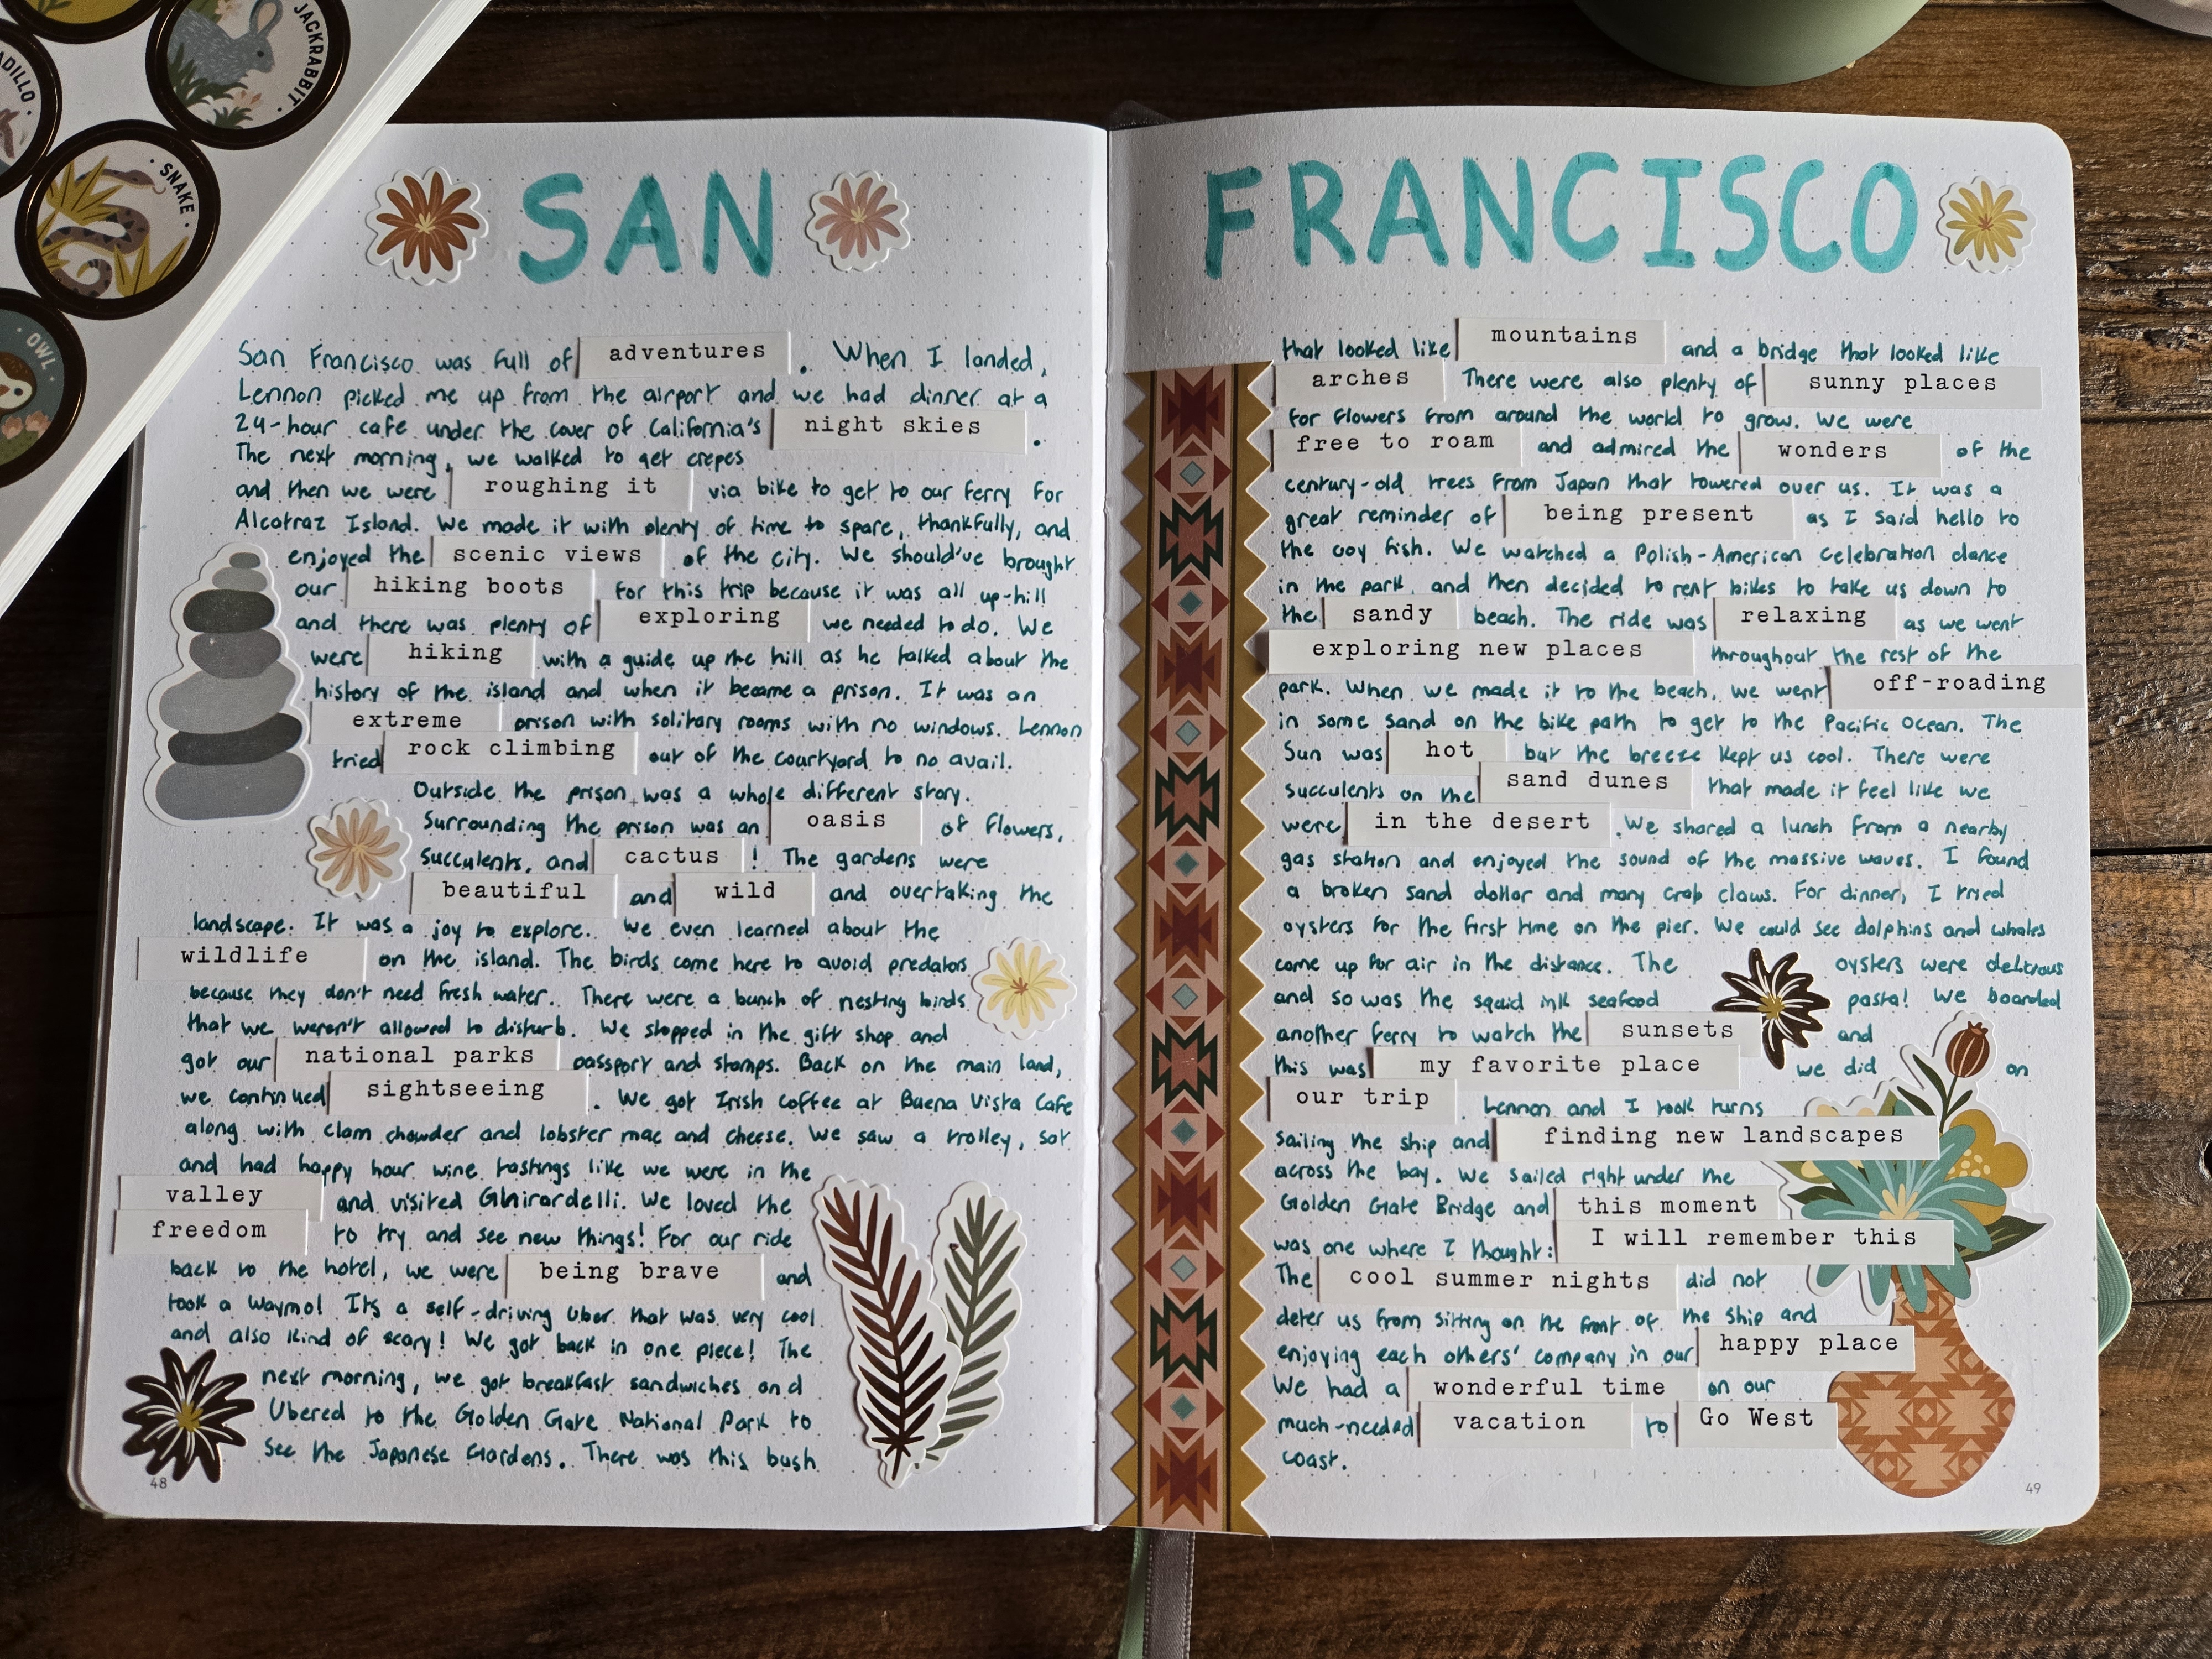 JACKRABBIT
ADILLO
SNAKE
OWL
SAN
San Francisco was full of adventures. When I landed,
Lennon picked me up from the airport and we had dinner at a
24-hour cafe under the cover of California's night skies.
The next morning, we walked to get crepes
and then we were roughing it via bike to get to our ferry for
Alcatraz Island. We made it with plenty of time to spare, thankfully, and
enjoyed the scenic views of the city. We should've brought
our hiking boots for this trip because it was all up-hill
and there was plenty of exploring we needed to do. We
were hiking with a guide up the hill as he talked about the
history of the island and when it became a prison. It was an
extreme prison with solitary rooms with no windows. Lennon
tried rock climbing out of the courtyard to no avail.
Outside the prison was a whole different story.
Surrounding the prison was an oasis of flowers,
succulents, and cactus! The gardens were
beautiful and wild and overtaking the
landscape. It was a joy to explore. We even learned about the
wildlife on the island. The birds come here to avoid predators
because they don't need fresh water. There were a bunch of nesting birds
that we weren't allowed to disturb. We stopped in the gift shop and
got our national parks passport and stamps. Back on the main land,
we continued sightseeing. We got Irish coffee at Buena Vista Cafe
along with clam chowder and lobster mac and cheese. We saw a trolley, sat
and had happy hour wine tastings like we were in the
valley and visited Ghirardelli. We loved the
freedom to try and see new things! For our ride
back to the hotel, we were being brave and
took a Waymo! Its a self-driving Uber that was very cool
and also kind of scary! We got back in one piece! The
next morning, we got breakfast sandwiches and
Ubered to the Golden Gate National Park to
see the Japanese Gardens. There was this bush
48
FRANCISCO
that looked like mountains and a bridge that looked like
arches There were also plenty of sunny places
for flowers from around the world to grow. We were
free to roam and admired the wonders of the
century-old trees from Japan that towered over us. It was a
great reminder of being present as I said hello to
the coy fish. We watched a Polish-American celebration dance
in the park and then decided to rent bikes to take us down to
the sandy beach. The ride was relaxing as we went
exploring new places throughout the rest of the
park. When we made it to the beach, we went off-roading
in some sand on the bike path to get to the Pacific Ocean. The
sun was hot but the breeze kept us cool. There were
succulents on the sand dunes that made it feel like we
were in the desert. We shared a lunch from a nearby
gas station and enjoyed the sound of the massive waves. I found
a broken sand dollar and many crab claws. For dinner, I tried
oysters for the first time on the pier. We could see dolphins and whales
come up for air in the distance. The oysters were delicious
and so was the squid ink seafood pasta! We boarded
another ferry to watch the sunsets and
this was my favorite place we did on
our trip. Lennon and I took turns
sailing the ship and finding new landscapes
across the bay. We sailed right under the
Golden Gate Bridge and this moment
was one where I thought: I will remember this
The cool summer nights did not
deter us from sitting on the front of the ship and
enjoying each others' company in our happy place
We had a wonderful time on our
much-needed vacation to Go West
coast.
49